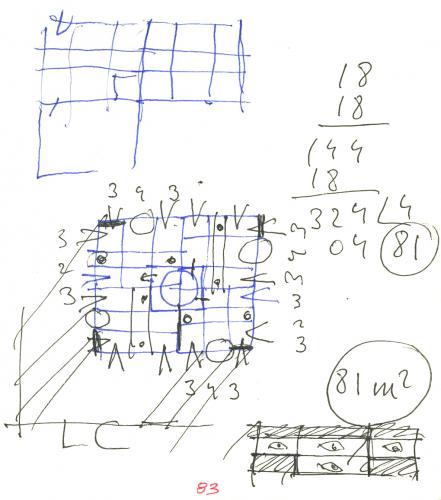 18
18
144
18
324 4
04 81
3 4 3
3
2
3
3
2
3
3
2
3
3 4 3
81 m²
L C
83